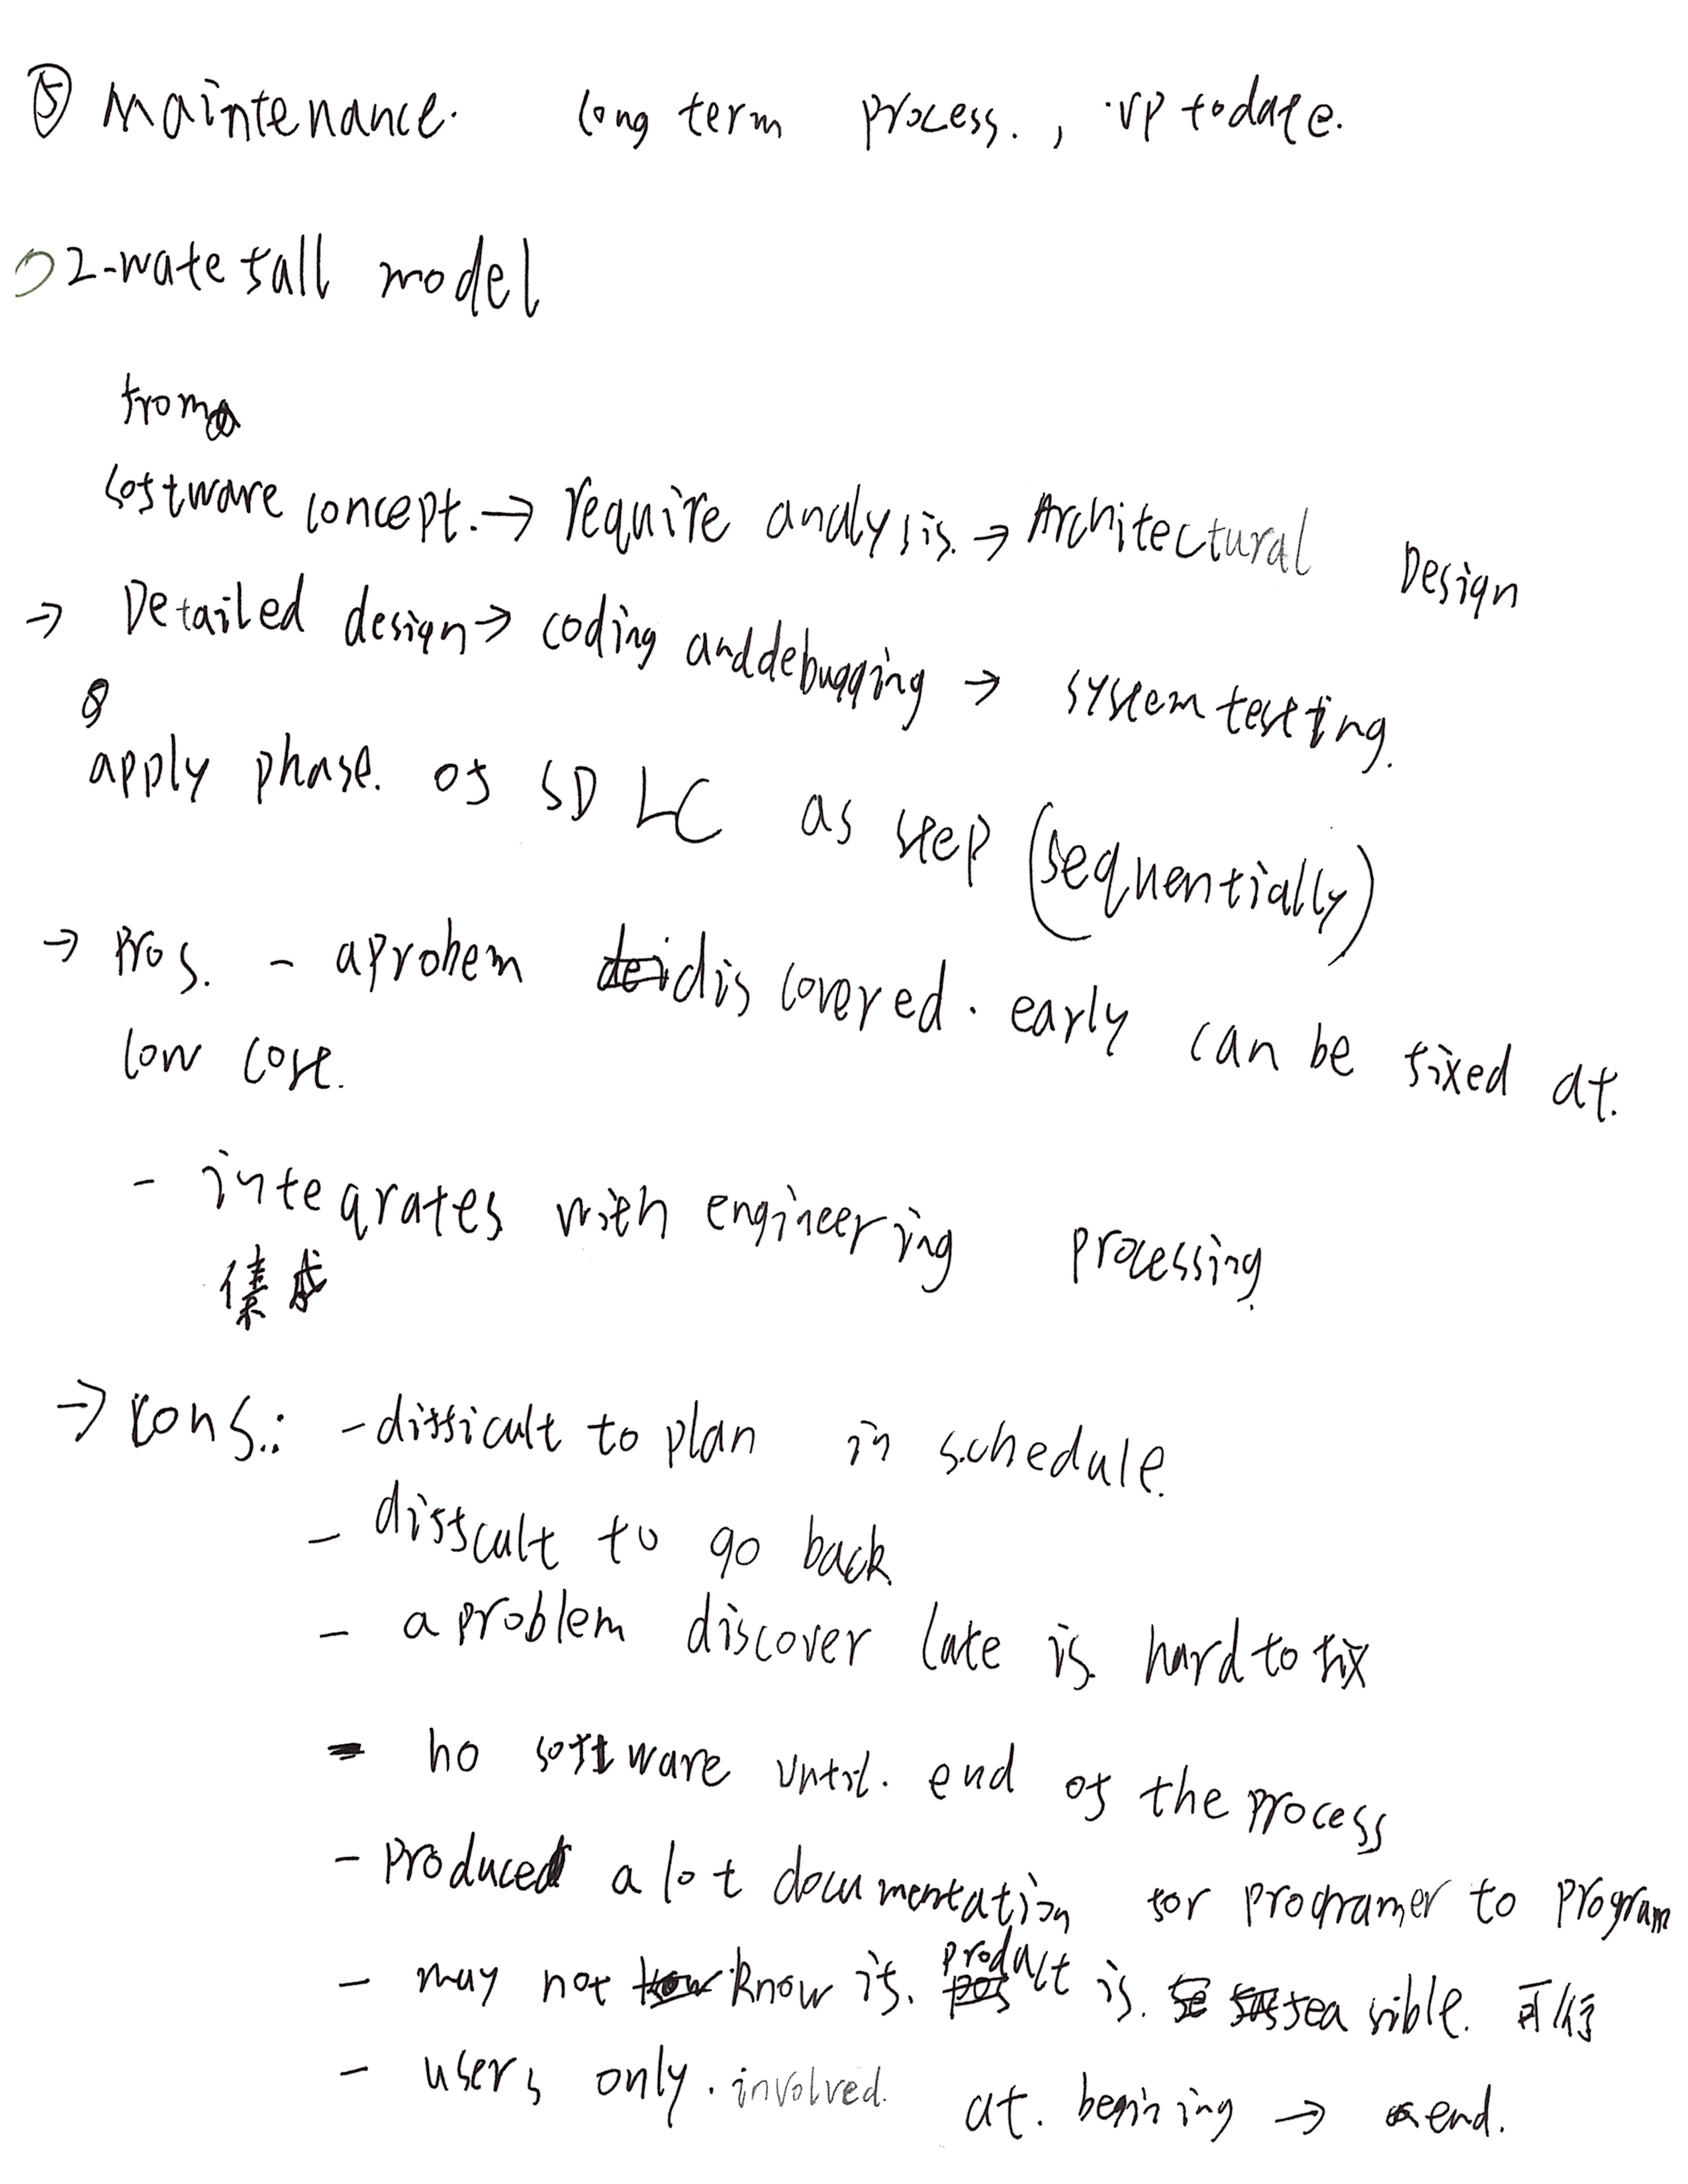 ⑤ Maintenance. long term process. , up todate.
2-watefall model
from
software concept. → require analysis. → Architectural Design
→ Detailed design → coding anddebugging → system testing.
apply phase. of SDLC as step (sequentially)
→ Pros. - aprobem discovered. early can be fixed at.
low cost.
- integrates with engineering processing
集成
→ cons.: - difficult to plan in schedule.
- diffcult to go back
- a problem discover late is hard to fix
- no software until. end of the process
- Produced a lot documentation for programer to program
- may not know is. product is. feasible. 可行
- users only. involved. at. begining → end.